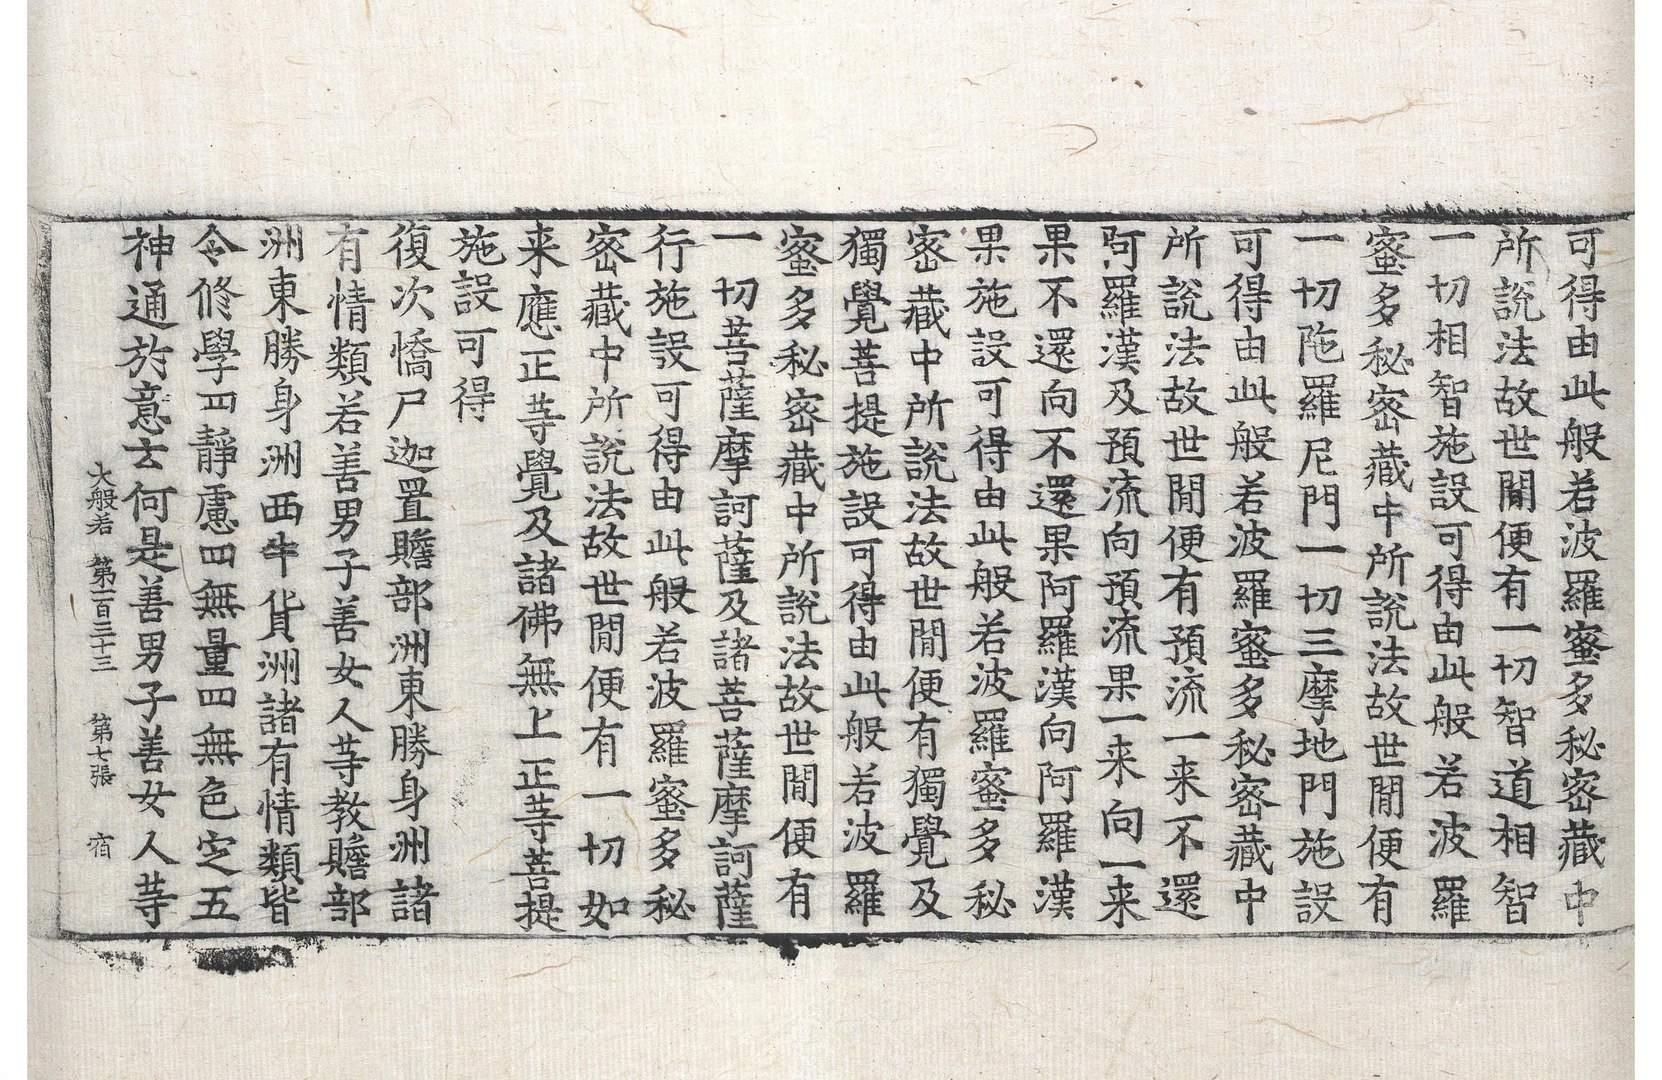 可得由此般若波羅蜜多秘密藏中
所說法故世間便有一切智道相智
一切相智施設可得由此般若波羅
蜜多秘密藏中所說法故世間便有
一切陁羅尼門一切三摩地門施設
可得由此般若波羅蜜多秘密藏中
所說法故世間便有預流一来不還
阿羅漢及預流向預流果一来向一来
果不還向不還果阿羅漢向阿羅漢
果施設可得由此般若波羅蜜多秘
密藏中所說法故世間便有獨覺及
獨覺菩提施設可得由此般若波羅
蜜多秘密藏中所說法故世間便有
一切菩薩摩訶薩及諸菩薩摩訶薩
行施設可得由此般若波羅蜜多秘
密藏中所說法故世間便有一切如
来應正等覺及諸佛無上正等菩提
施設可得
復次憍尸迦置贍部洲東勝身洲諸
有情類若善男子善女人等教贍部
洲東勝身洲西牛貨洲諸有情類皆
令修學四靜慮四無量四無色定五
神通於意云何是善男子善女人等
大般若 第一百三十三 第七張 宿